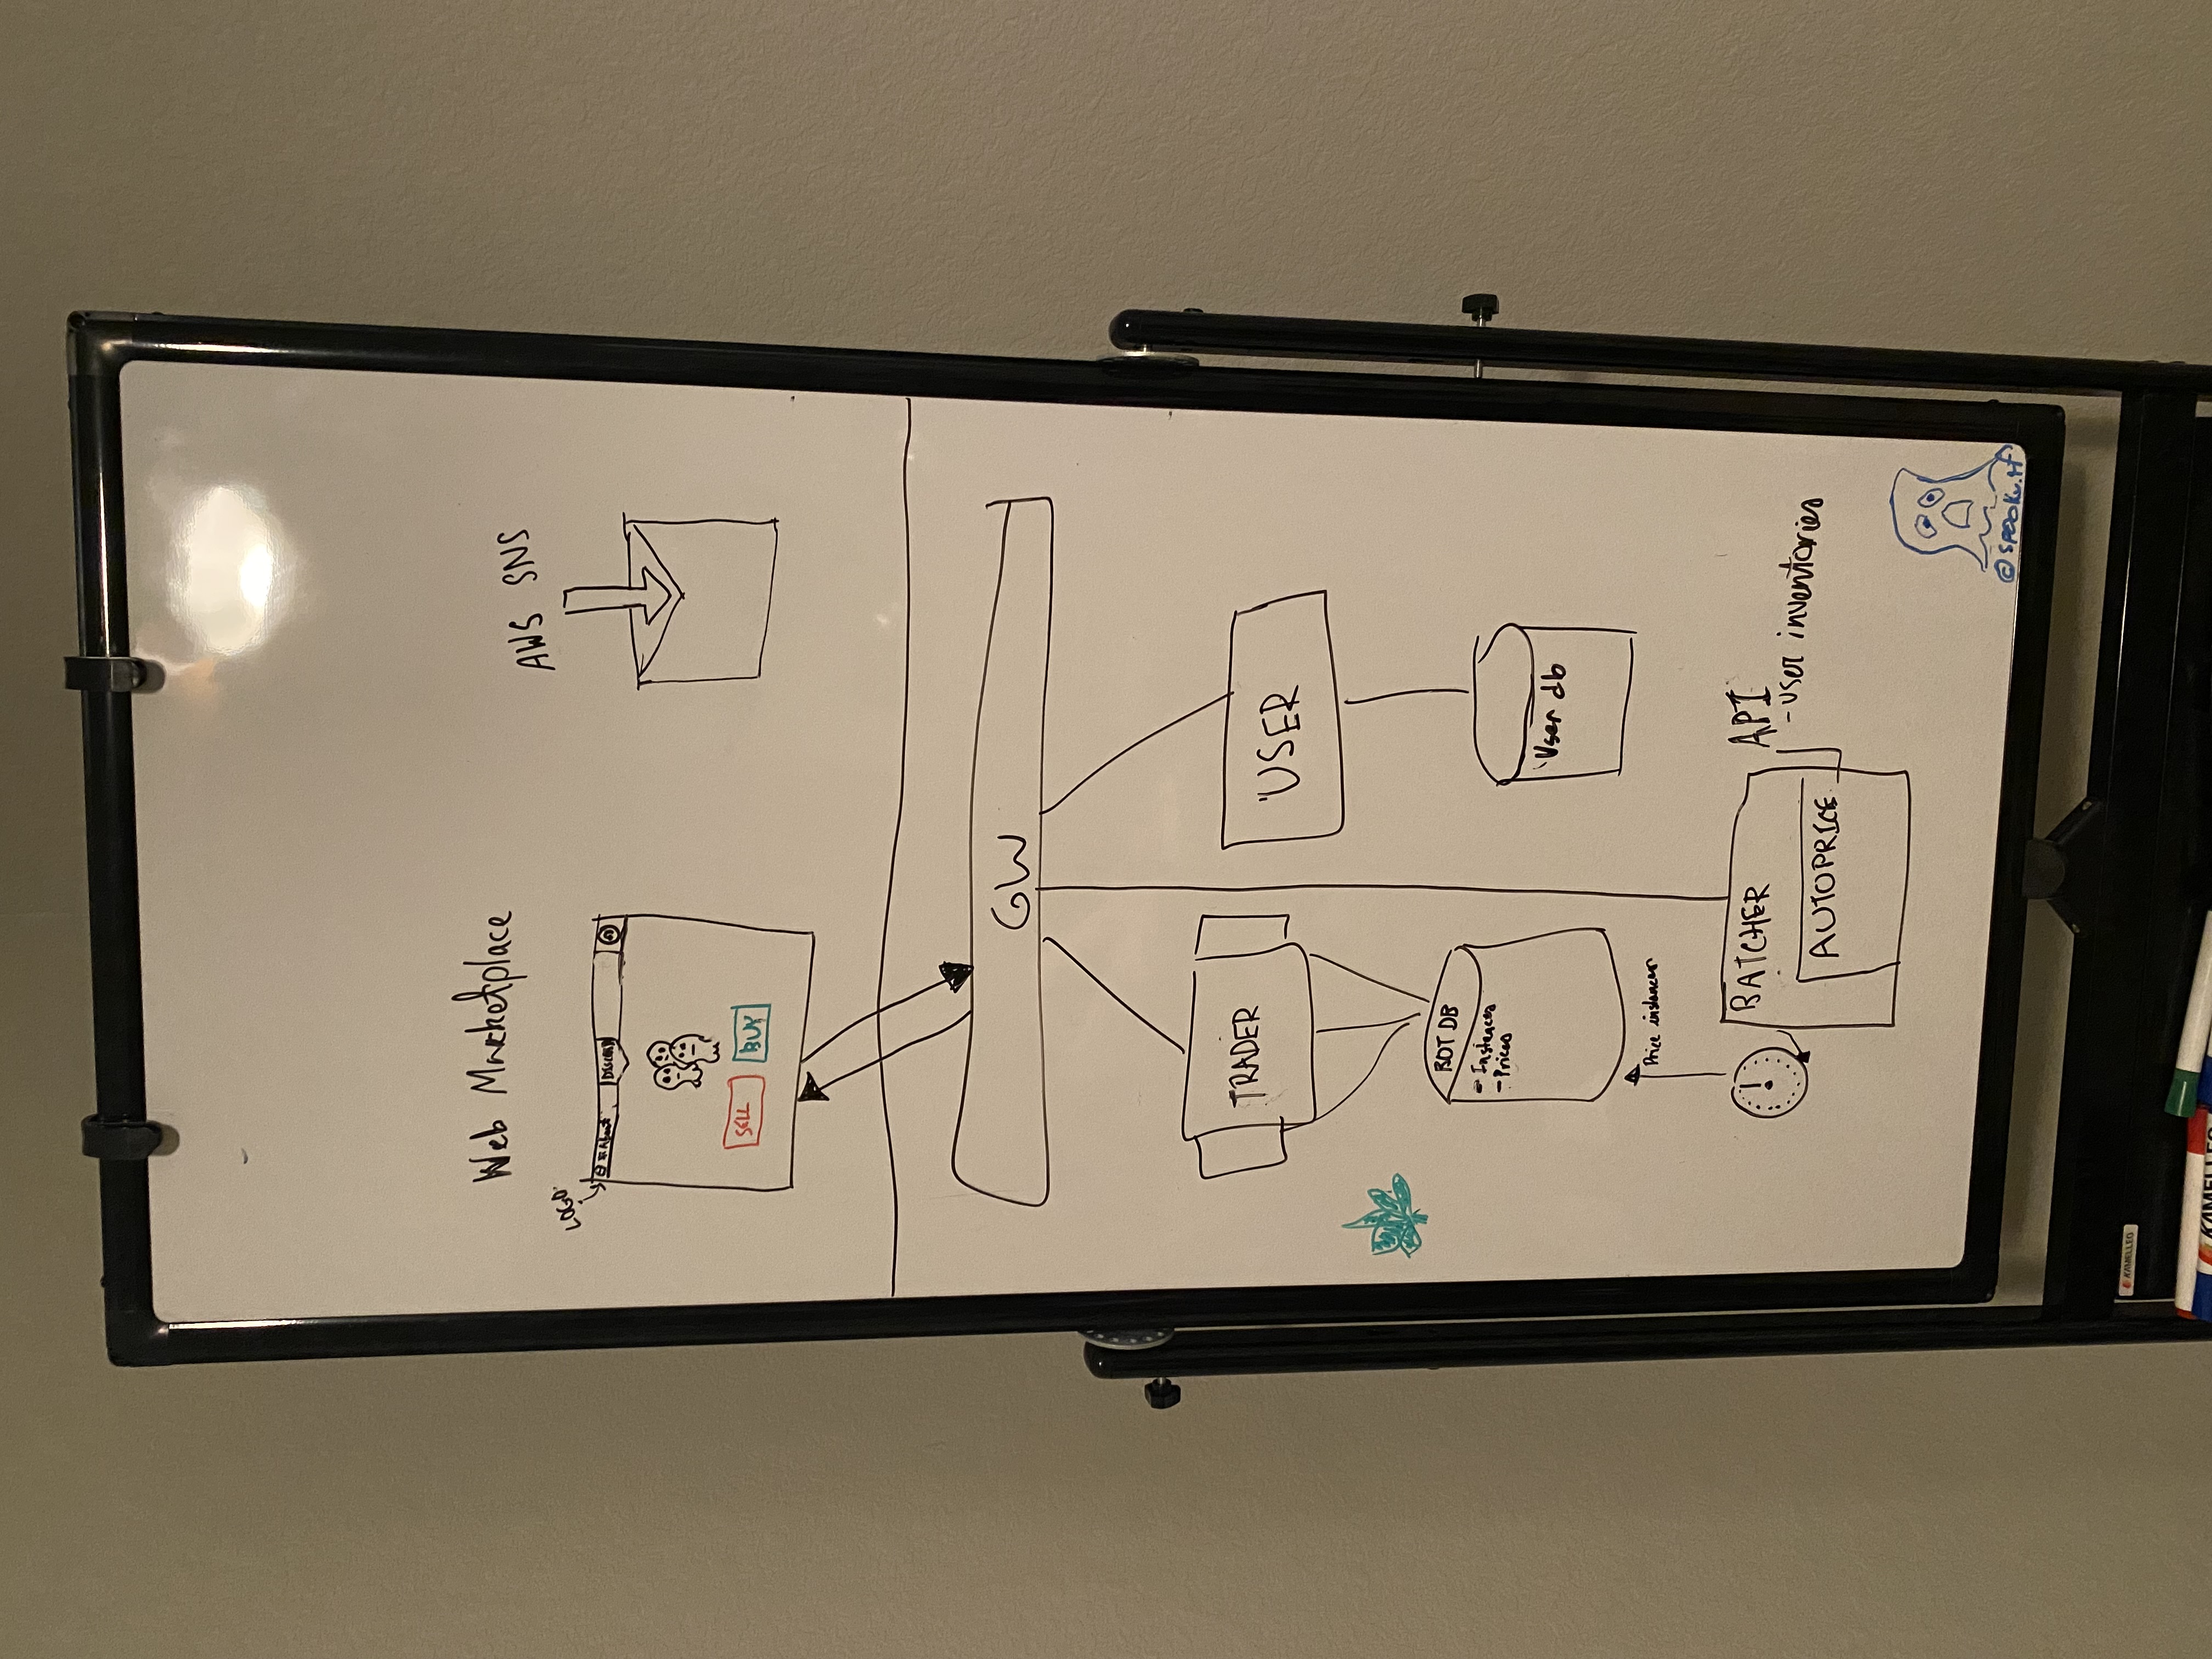 Web Marketplace
AWS SNS
LOGO
About
DISCORD
SELL
BUY
GW
TRADER
USER
BOT DB
- Instances
- Prices
User db
Price instances
BATCHER
API
- user inventories
AUTOPRICE
© SPOOKY.tf
KAMELLEO
KAMELLEO